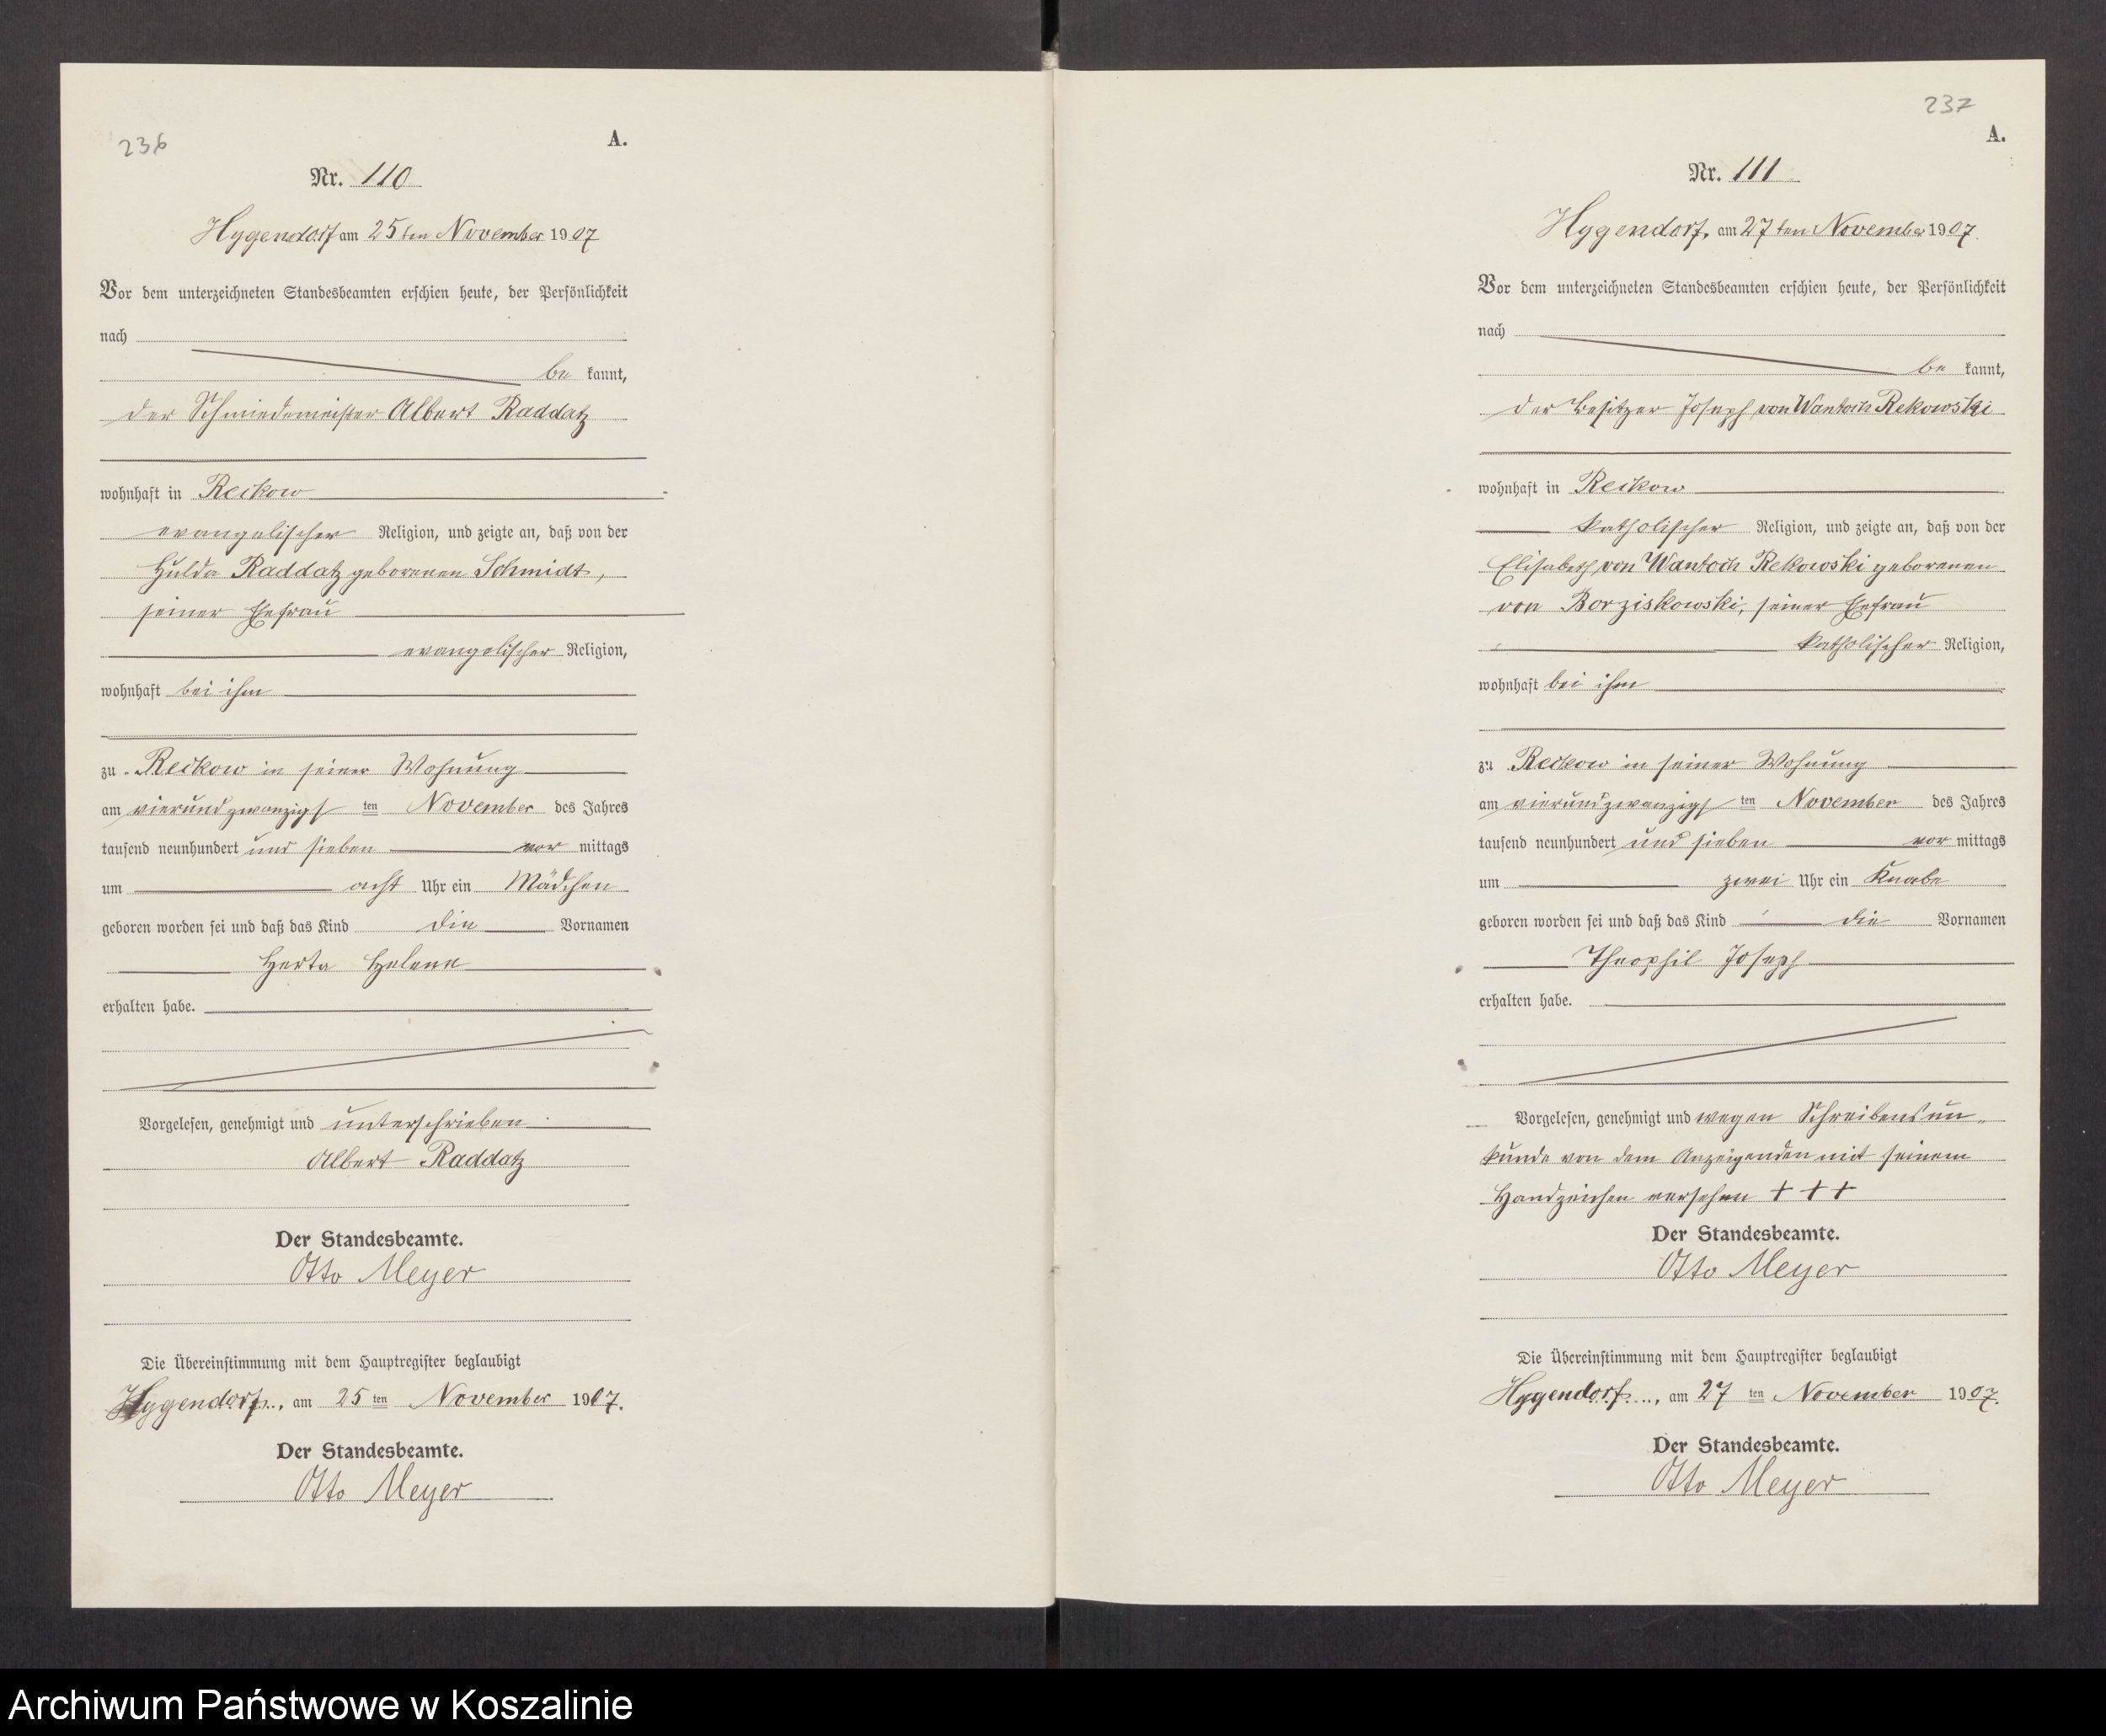 236
A.
Nr. 110
Hygendorf am 25ten November 1907
Vor dem unterzeichneten Standesbeamten erschien heute, der Persönlichkeit
nach
be kannt,
der Schmiedemeister Albert Raddatz
wohnhaft in Reckow
evangelischer Religion, und zeigte an, daß von der
Hulda Raddatz geborenen Schmidt,
seiner Ehefrau
evangelischer Religion,
wohnhaft bei ihm
zu Reckow in seiner Wohnung
am vierundzwanzigsten November des Jahres
tausend neunhundert und sieben vor mittags
um acht Uhr ein Mädchen
geboren worden sei und daß das Kind die Vornamen
Herta Helene
erhalten habe.
Vorgelesen, genehmigt und unterschrieben
Albert Raddatz
Der Standesbeamte.
Otto Meyer
Die Übereinstimmung mit dem Hauptregister beglaubigt
Hygendorf, am 25ten November 1907.
Der Standesbeamte.
Otto Meyer
237
A.
Nr. 111
Hygendorf, am 27ten November 1907.
Vor dem unterzeichneten Standesbeamten erschien heute, der Persönlichkeit
nach
be kannt,
der Besitzer Joseph von Wantoch Rekowski
wohnhaft in Reckow
katholischer Religion, und zeigte an, daß von der
Elisabeth von Wantoch Rekowski geborenen
von Borziskowski, seiner Ehefrau
katholischer Religion,
wohnhaft bei ihm
zu Reckow in seiner Wohnung
am vierundzwanzigsten November des Jahres
tausend neunhundert und sieben vor mittags
um zwei Uhr ein Knabe
geboren worden sei und daß das Kind die Vornamen
Theophil Joseph
erhalten habe.
Vorgelesen, genehmigt und wegen Schreibensun-
kunde von dem Anzeigenden mit seinem
Handzeichen versehen +++
Der Standesbeamte.
Otto Meyer
Die Übereinstimmung mit dem Hauptregister beglaubigt
Hygendorf, am 27ten November 1907.
Der Standesbeamte.
Otto Meyer
Archiwum Państwowe w Koszalinie